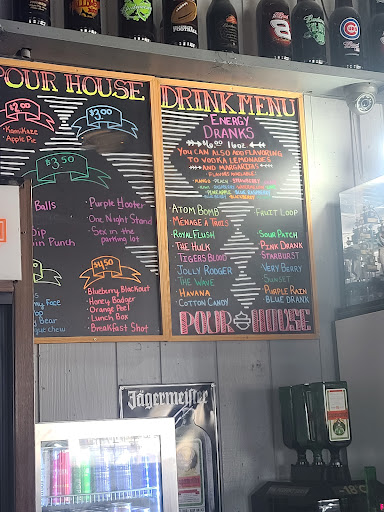 POUR HOUSE
$2.00
• Kamikaze
• Apple Pie
$3.00
$3.50
Balls
Dip
Punch
• Purple Hooter
• One Night Stand
• Sex in the
parking lot
$4.50
• Blueberry Blackout
• Honey Badger
• Orange Peel
• Lunch Box
• Breakfast Shot
Face
Bear
chew
DRINK MENU
ENERGY
DRANKS
16oz
YOU CAN ALSO ADD FLAVORING
TO VODKA LEMONADES
AND MARGARITAS
FLAVORS AVAILABLE:
MANGO PEACH STRAWBERRY
PINEAPPLE BLUE RASPBERRY
ATOM BOMB
MENAGE A TROIS
ROYAL FLUSH
THE HULK
TIGERS BLOOD
JOLLY RODGER
THE WAVE
HAVANA
COTTON CANDY
FRUIT LOOP
SOUR PATCH
PINK DRANK
STARBURST
VERY BERRY
SUNSET
PURPLE RAIN
BLUE DRANK
POUR HOUSE
Jägermeister
-18°C